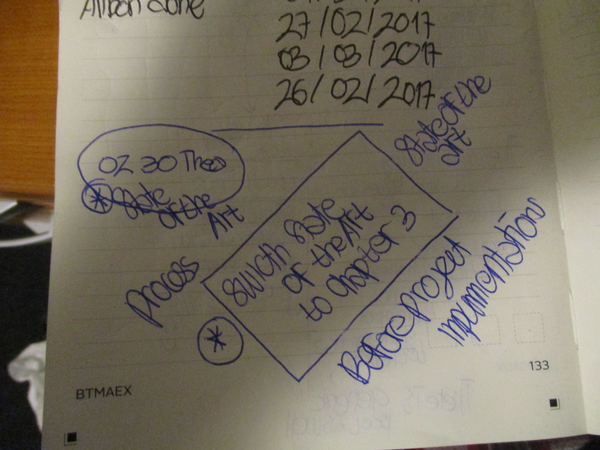 27/02/2017
03/03/2017
26/02/2017
State of the
art
State
of the
Art
Process
Swicth State
of the Art
to Chapter 3
*
Before Project
Implementation
BTMAEX
133